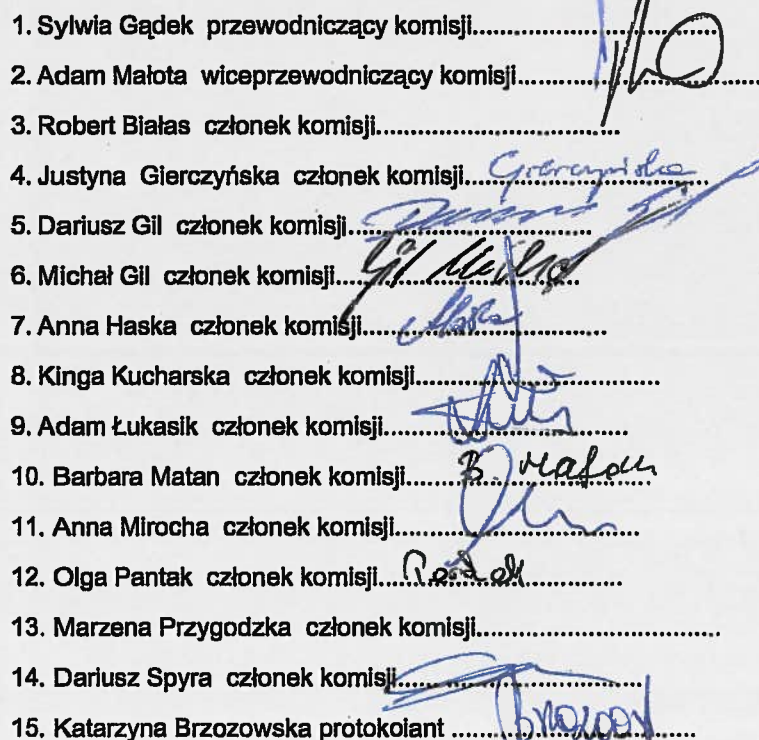 1. Sylwia Gądek przewodniczący komisji......................................
2. Adam Małota wiceprzewodniczący komisji......................................
3. Robert Białas członek komisji......................................
4. Justyna Gierczyńska członek komisji...................................... Gierczyńska
5. Dariusz Gil członek komisji......................................
6. Michał Gil członek komisji...................................... Gil Michał
7. Anna Haska członek komisji...................................... Haska
8. Kinga Kucharska członek komisji......................................
9. Adam Łukasik członek komisji......................................
10. Barbara Matan członek komisji...................................... B. Matan
11. Anna Mirocha członek komisji......................................
12. Olga Pantak członek komisji......................................
13. Marzena Przygodzka członek komisji......................................
14. Dariusz Spyra członek komisji......................................
15. Katarzyna Brzozowska protokolant ......................................